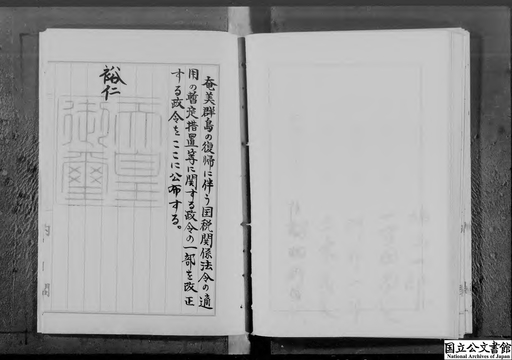 奄美群島の復帰に伴う国税関係法令の適
用の暫定措置等に関する政令の一部を改正
する政令をここに公布する。
裕仁
天皇
御璽
国立公文書館
National Archives of Japan